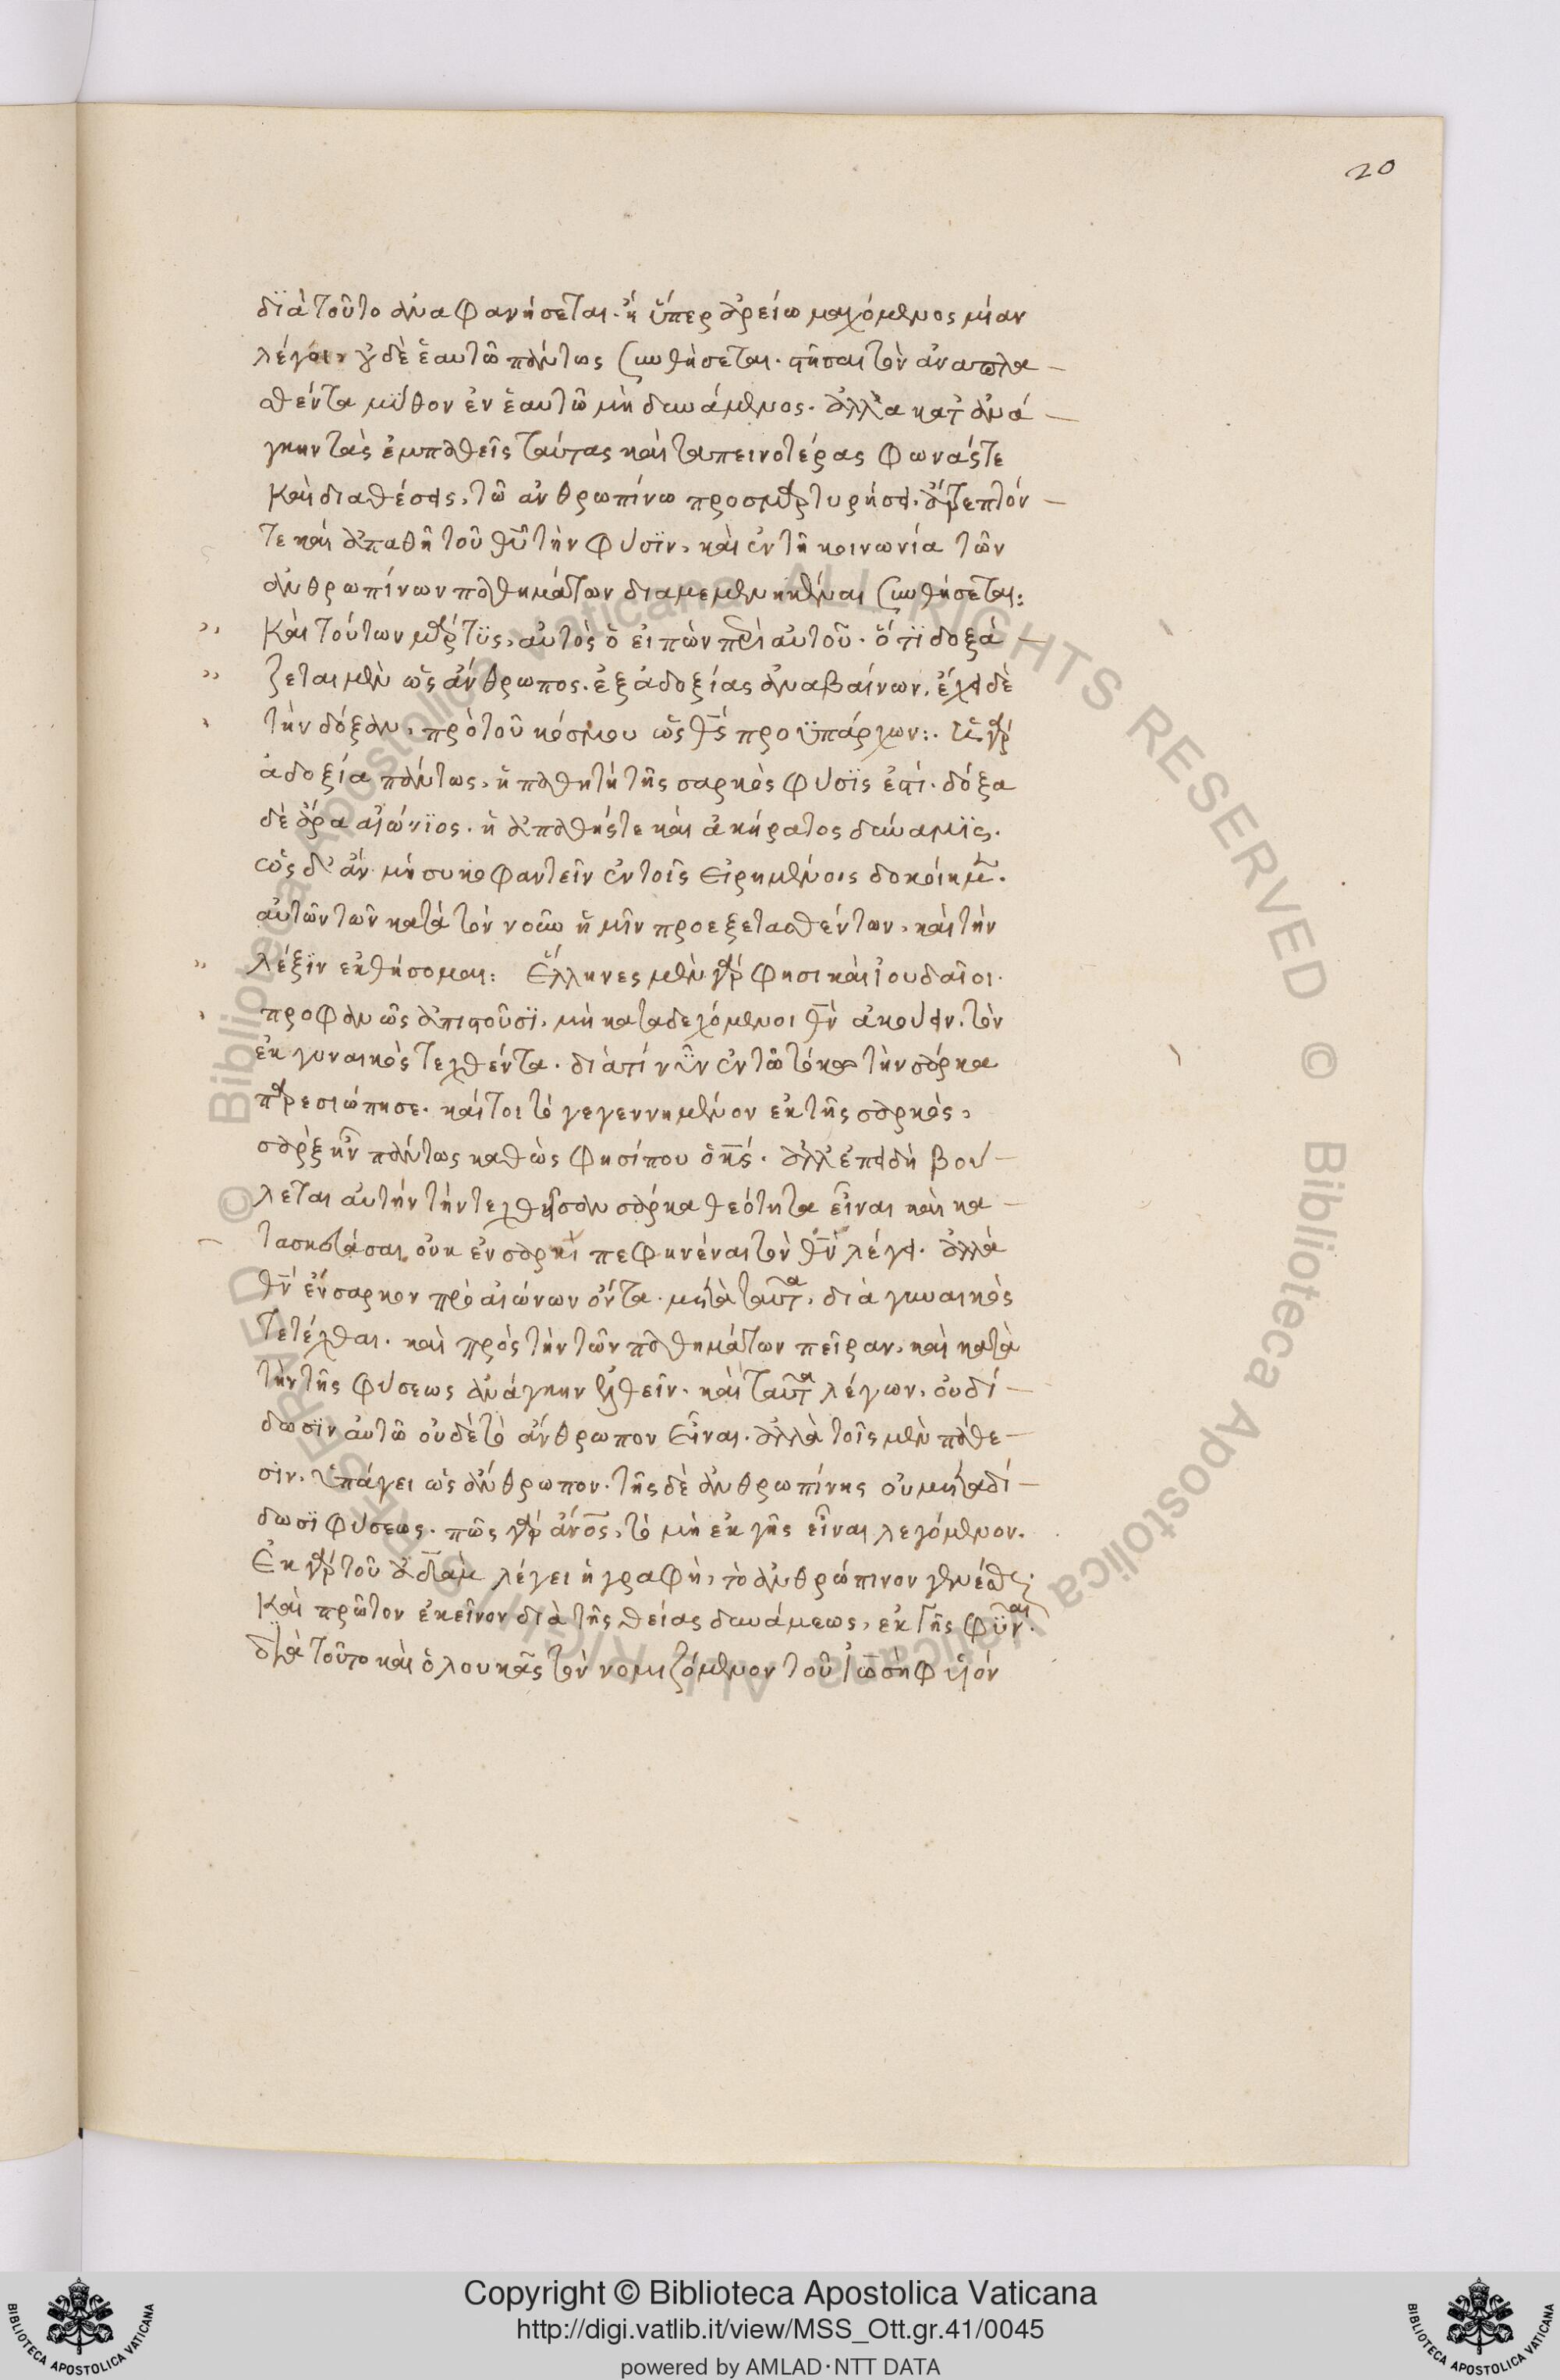 20
διὰ τοῦτο ἀναφανήσεται. ἢ ὑπὲρ ἀρείω μαχόμενος μίαν
λέγει, οὐδὲ ἑαυτῶ πάντως συνθήσεται. στῆσαι τὸν ἀναπλα-
σθέντα μῦθον ἐν ἑαυτῶ μὴ δυνάμενος. ἀλλὰ κατ' ἀνά-
γκην τὰς ἐμπαθεῖς ταύτας καὶ ταπεινοτέρας φωνάς τε
καὶ διαθέσεις, τῶ ἀνθρωπίνω προσμαρτυρήσει. ἄτρεπτόν-
τε καὶ ἀπαθῆ τοῦ θυ τὴν φύσϊν, καὶ ἐν τῆ κοινωνία τῶν
ἀνθρωπίνων παθημάτων διαμεμενηκέναι συνθήσεται:
Καὶ τούτων μάρτϋς, αὐτὸς ὁ εἰπὼν περὶ αὐτοῦ. ὅτϊ δοξά-
ζεται μὲν ὡς ἄνθρωπος. ἐξ ἀδοξίας ἀναβαίνων, ἔχει δὲ
τὴν δόξαν, πρὸ τοῦ κόσμου ὡς θς προϋπάρχων:. γὰρ
ἀδοξία πάντως, ἡ παθητὴ τῆς σαρκὸς φύσϊς ἐστί. δόξα
δὲ ἄρα αἰώνϊος. ἡ ἀπαθής τε καὶ ἀκήρατος δύναμϊς.
ὡς δ' ἂν μὴ συκοφαντεῖν ἐν τοῖς εἰρημένοις δοκοίημ.
αὐτῶν τῶν κατὰ τὸν νοῦν ἡμῖν προεξετασθέντων, καὶ τὴν
λέξϊν ἐκθήσομαι: Ἕλληνες μὲν γάρ φησι καὶ ἰουδαῖοι.
προφανῶς ἀπιστοῦσϊ, μὴ καταδεχόμενοι θν ἀκούειν, τὸν
ἐκ γυναικὸς τεχθέντα. διὰ τί νῦν ἐν τῶ τόκω τὴν σάρκα
παρεσιώπησε. καίτοι τὸ γεγεννημένον ἐκ τῆς σαρκὸς,
σάρξ ἦν πάντως καθὼς φησί που ὁ κς. ἀλλ' ἐπειδὴ βού-
λεται αὐτὴν τὴν τεχθεῖσαν σάρκα θεότητα εἶναι καὶ κα-
τασκευάσαι, οὐκ ἐν σαρκὶ πεφηνέναι τὸν θν λέγει. ἀλλὰ
θν ἔνσαρκον πρὸ αἰώνων ὄντα. μετὰ ταῦτα, διὰ γυναικὸς
τετέχθαι. καὶ πρὸς τὴν τῶν παθημάτων πεῖραν, καὶ κατὰ
τὴν τῆς φύσεως ἀνάγκην ἐλθεῖν. καὶ ταῦτα λέγων, οὐδί-
δωσϊν αὐτῶ οὐδὲ τὸ ἄνθρωπον εἶναι. ἀλλὰ τοῖς μὲν πάθε-
σϊν. ὑπάγει ὡς ἄνθρωπον. τῆς δὲ ἀνθρωπίνης οὐ μεταδί-
δωσϊ φύσεως. πῶς γὰρ ἄνος, τὸ μὴ ἐκ γῆς εἶναι λεγόμενον.
Ἐκ γὰρ τοῦ ἀδὰμ λέγει ἡ γραφὴ, τὸ ἀνθρώπινον γενέσθαι.
Καὶ πρῶτον ἐκεῖνον διὰ τῆς θείας δυνάμεως, ἐκ γῆς φῦναι.
διὰ τοῦτο καὶ ὁ λουκᾶς τὸν νομιζόμενον τοῦ ἰωσὴφ υἱόν
Copyright © Biblioteca Apostolica Vaticana
http://digi.vatlib.it/view/MSS_Ott.gr.41/0045
powered by AMLAD·NTT DATA